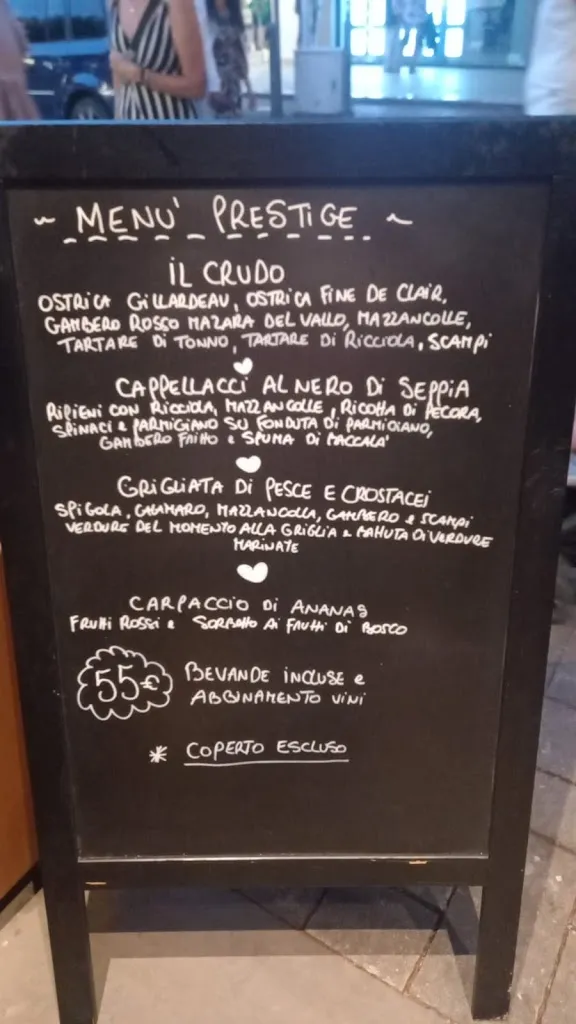 ~ MENU' PRESTIGE ~
IL CRUDO
OSTRICA GILLARDEAU, OSTRICA FINE DE CLAIR,
GAMBERO ROSSO MAZARA DEL VALLO, MAZZANCOLLE,
TARTARE DI TONNO, TARTARE DI RICCIOLA, SCAMPI
CAPPELLACCI AL NERO DI SEPPIA
RIPIENI CON RICCIOLA, MAZZANCOLLE, RICOTTA DI PECORA,
SPINACI E PARMIGIANO SU FONDUTA DI PARMIGIANO,
GAMBERO FRITTO E SPUMA DI BACCALA'
GRIGLIATA DI PESCE E CROSTACEI
SPIGOLA, CALAMARO, MAZZANCOLLA, GAMBERO E SCAMPI
VERDURE DEL MOMENTO ALLA GRIGLIA E BATTUTA DI VERDURE
MARINATE
CARPACCIO DI ANANAS
FRUTTI ROSSI E SORBETTO AI FRUTTI DI BOSCO
55€ BEVANDE INCLUSE E
ABBINAMENTO VINI
* COPERTO ESCLUSO